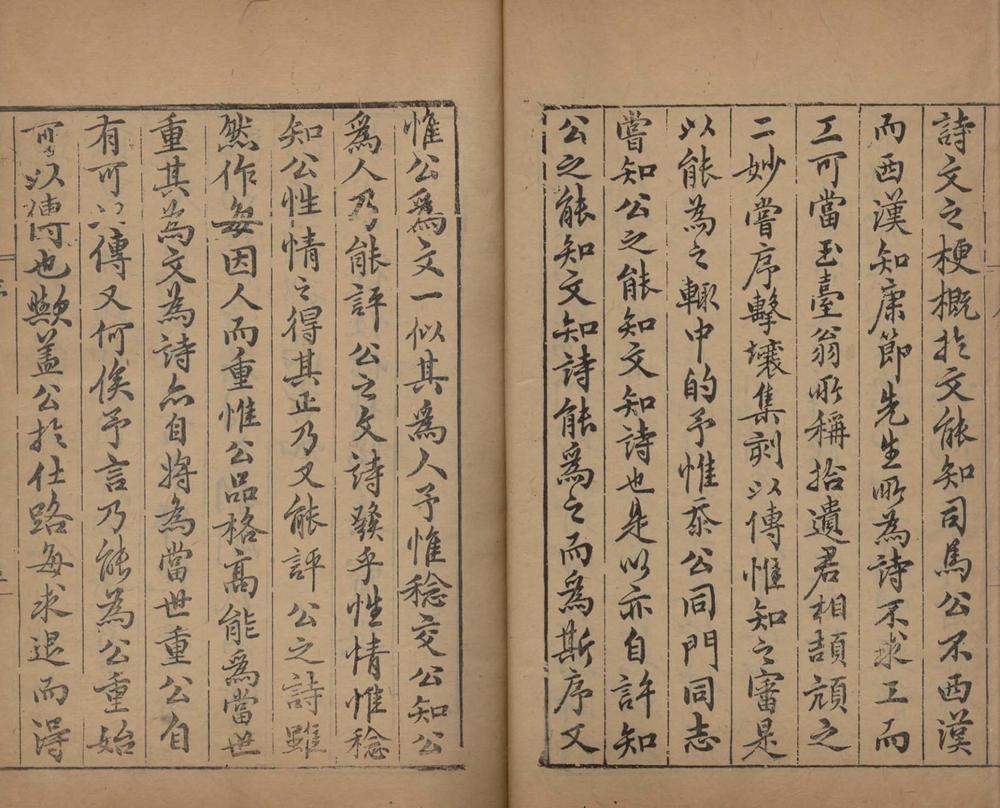 詩文之梗概於文能知司馬公不西漢
而西漢知康節先生所為詩不求工而
工可當玉臺翁所稱拾遺君相頡頏之
二妙嘗序擊壤集刻以傳惟知之審是
以能為之輙中的予惟忝公同門同志
嘗知公之能知文知詩也是以亦自許知
公之能知文知詩能為之而為斯序又
惟公為文一似其為人予惟稔交公知公
為人乃能評公之文詩發乎性情惟稔
知公性情之得其正乃又能評公之詩雖
然作每因人而重惟公品格高能為當世
重其為文為詩亦自將為當世重公自
有可以傳又何俟予言乃能為公重始
可以傳也歟蓋公於仕路每求退而得